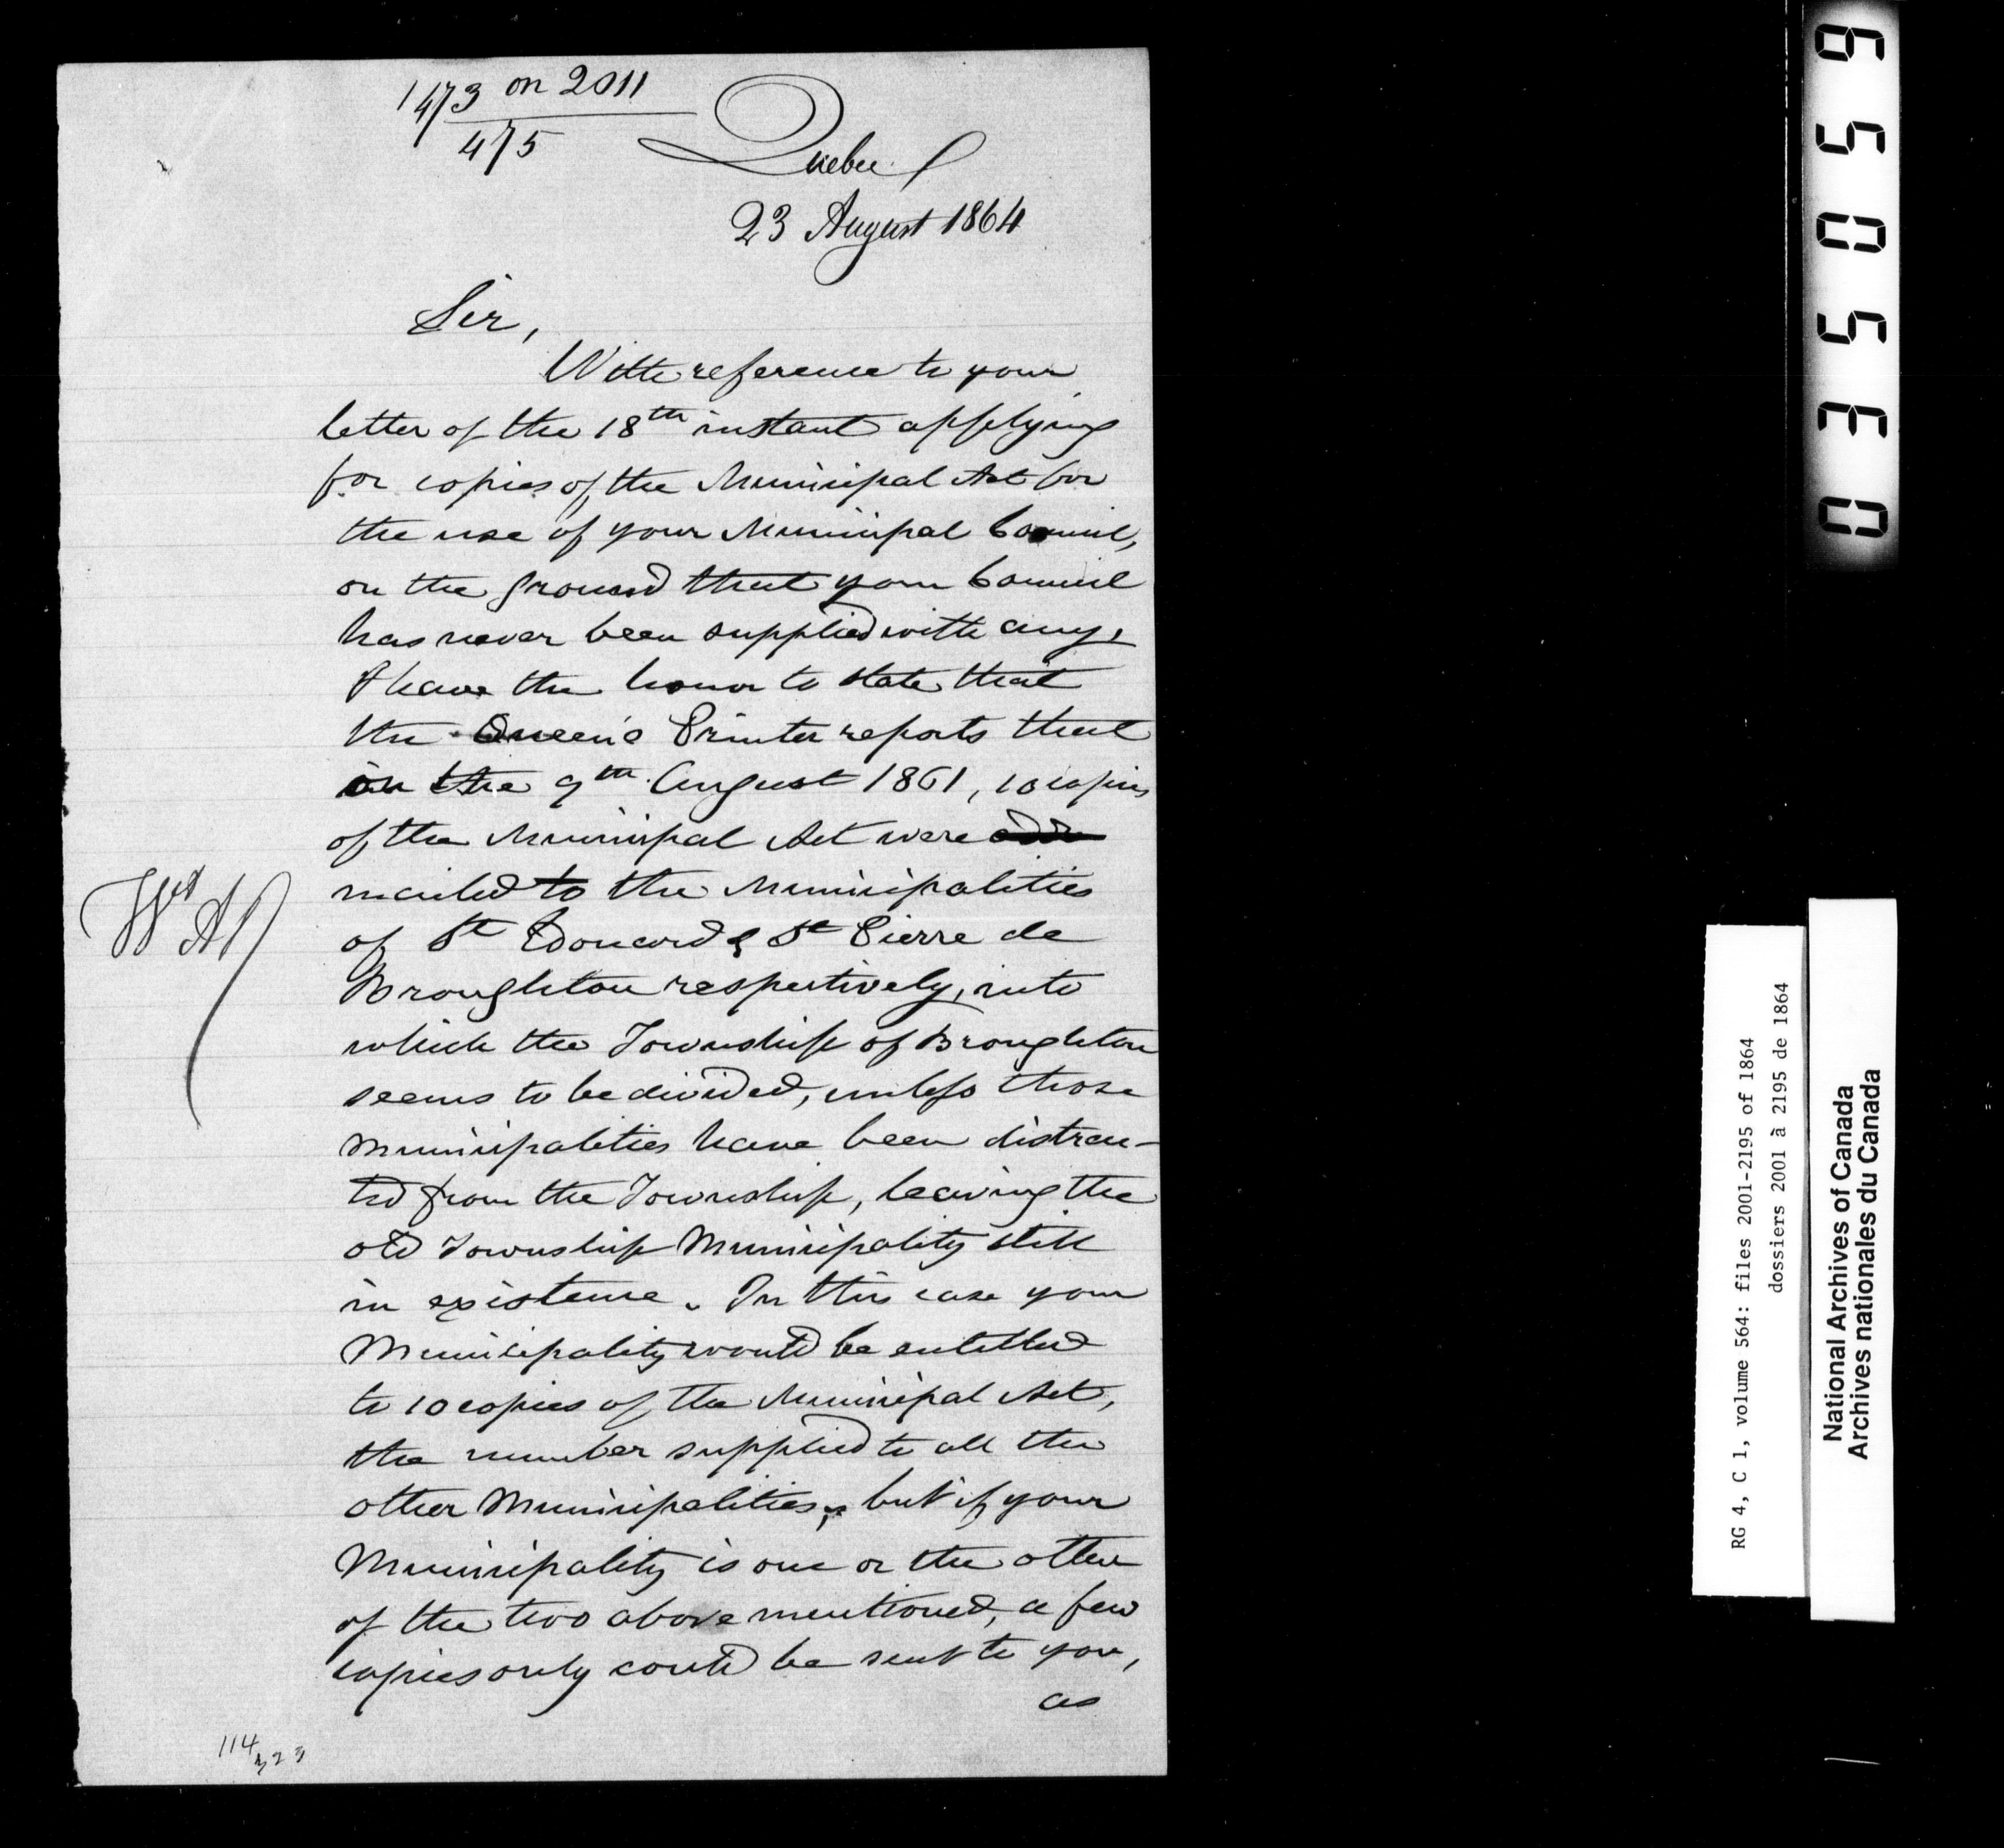 1473 on 2011
475
Quebec
23 August 1864
Sir,
With reference to your
letter of the 18th instant applying
for copies of the Municipal Act for
the use of your Municipal Council,
on the ground that your Council
has never been supplied with any,
I have the honor to state that
the Queen's Printer reports that
on the 9th August 1861, 10 copies
of the Municipal Act were
mailed to the Municipalities
of St Edouard & St Pierre de
Broughton respectively, into
which the Township of Broughton
seems to be divided, unless those
Municipalities have been distrac-
ted from the Township, leaving the
old Township Municipality still
in existence. In this case your
Municipality would be entitled
to 10 copies of the Municipal Act,
the number supplied to all the
other Municipalities, but if your
Municipality is one or the other
of the two above mentioned, a few
copies only could be sent to you,
as
114
035059
RG 4, C 1, volume 564: files 2001-2195 of 1864
dossiers 2001 à 2195 de 1864
National Archives of Canada
Archives nationales du Canada